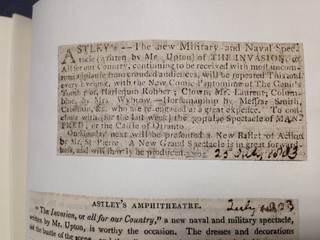 ASTLEY's.—The new Military and Naval Spec-
tacle (written by Mr. Upton) of THE INVASION, or
All for our Country, continuing to be received with most uncom-
mon applause from crowded audiences, will be repeated This and
every Evening, with the New Comic Pantomime of The Genii's
or, Harlequin Robber; Clown, Mr. Laurent; Colum-
bine, by Mrs. Wybrow.—Horsemanship by Messrs Smith,
&c. who are re-engaged at a great expence. To con-
clude with (for the last week) the popular Spectacle of MAN-
FRED; or the Castle of Otranto.
On Monday next will be presented a New Ballet of Action
by Mr. St. Pierre. A New Grand Spectacle is in great forward-
ness, and will shortly be produced.
25 July 1803
ASTLEY'S AMPHITHEATRE.
July 1803
"The Invasion, or all for our Country," a new naval and military spectacle,
written by Mr. Upton, is worthy the occasion. The dresses and decorations
and the bustle of the scene, and